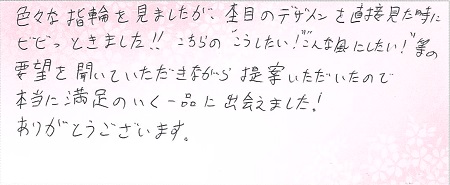 色々な指輪を見ましたが、杢目のデザインを直接見た時に
ビビっときました!! こちらの"こうしたい!""こんな風にしたい!"等の
要望を聞いていただきながら提案いただいたので
本当に満足のいく一品に出会えました!
ありがとうございます。